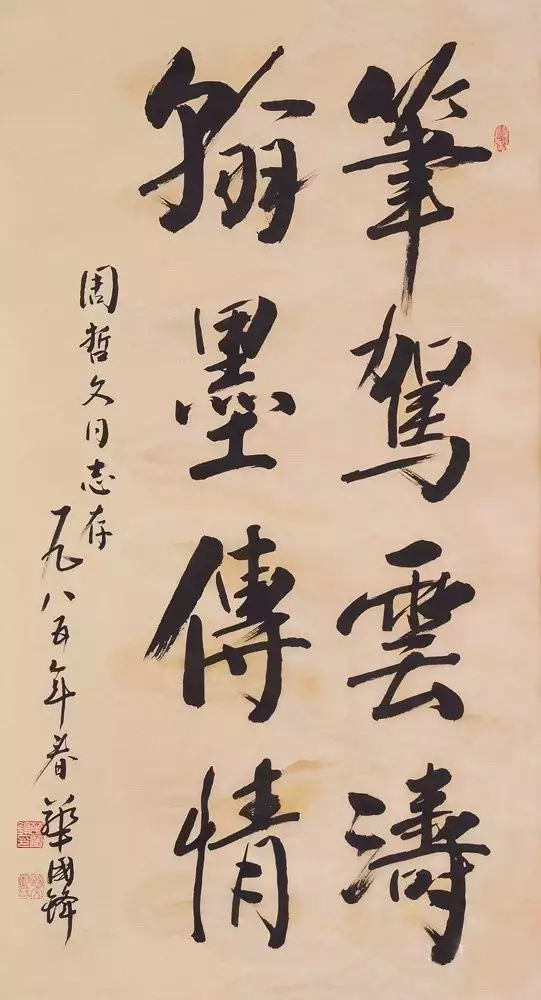 筆駕雲濤
翰墨傳情
周哲文同志存
一九八五年春 華國鋒